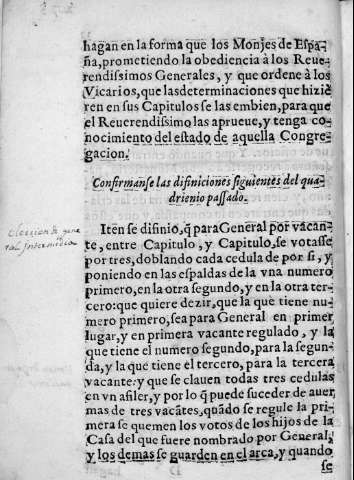 hagan en la forma que los Monjes de Espa-
ña, prometiendo la obediencia à los Reue-
rendissimos Generales, y que ordene à los
Vicarios, que las determinaciones que hizie-
ren en sus Capitulos se las embien, para que
el Reuerendissimo las aprueue, y tenga co-
nocimiento del estado de aquella Congre-
gacion.
Confirmanse las difiniciones siguientes del qua-
drienio passado.
Iten se difinio, q̃ para General por vacan-
te, entre Capitulo, y Capitulo, se votasse
por tres, doblando cada cedula de por si, y
poniendo en las espaldas de la vna numero
primero, en la otra segundo, y en la otra ter-
cero: que quiere dezir, que la que tiene nu-
mero primero, sea para General en primer
lugar, y en primera vacante regulado, y la
que tiene el numero segundo, para la segun-
da, y la que tiene el tercero, para la tercera
vacante: y que se clauen todas tres cedulas
en vn afiler, y por lo q̃ puede suceder de auer
mas de tres vacãtes, quãdo se regule la pri-
mera se quemen los votos de los hijos de la
Casa del que fuere nombrado por General,
y los demas se guarden en el arca, y quando
se
Eleccion de gene
ral intermedia